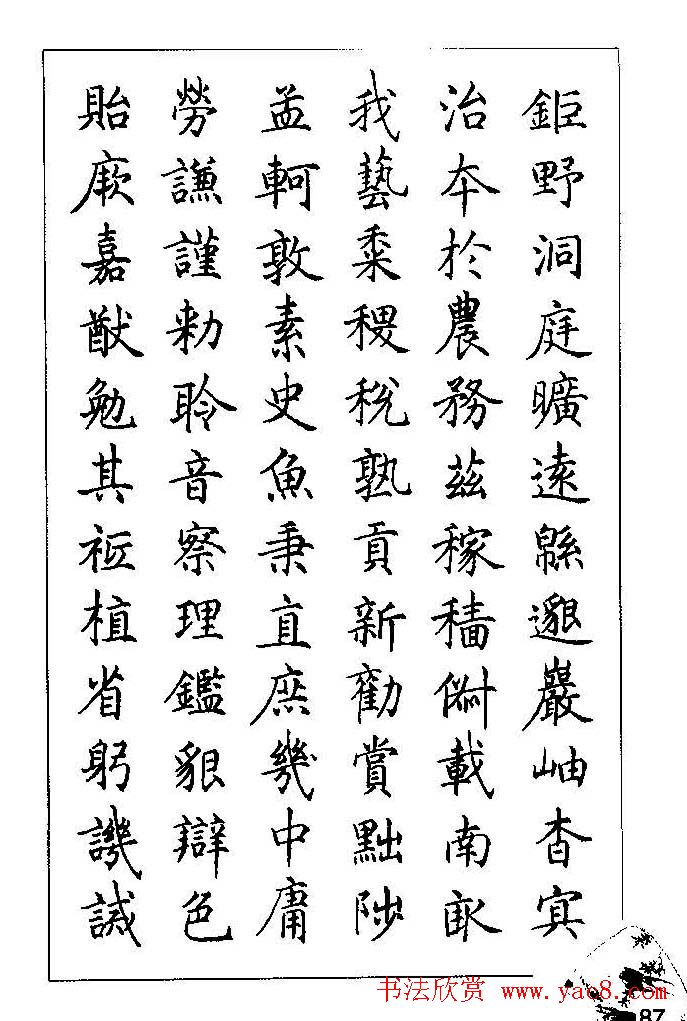 鉅野洞庭曠遠緜邈巖岫杳冥
治本於農務茲稼穡俶載南畝
我藝黍稷稅熟貢新勸賞黜陟
孟軻敦素史魚秉直庶幾中庸
勞謙謹勅聆音察理鑑貌辯色
貽厥嘉猷勉其祗植省躬譏誡
书法欣赏 www.yac8.com
87